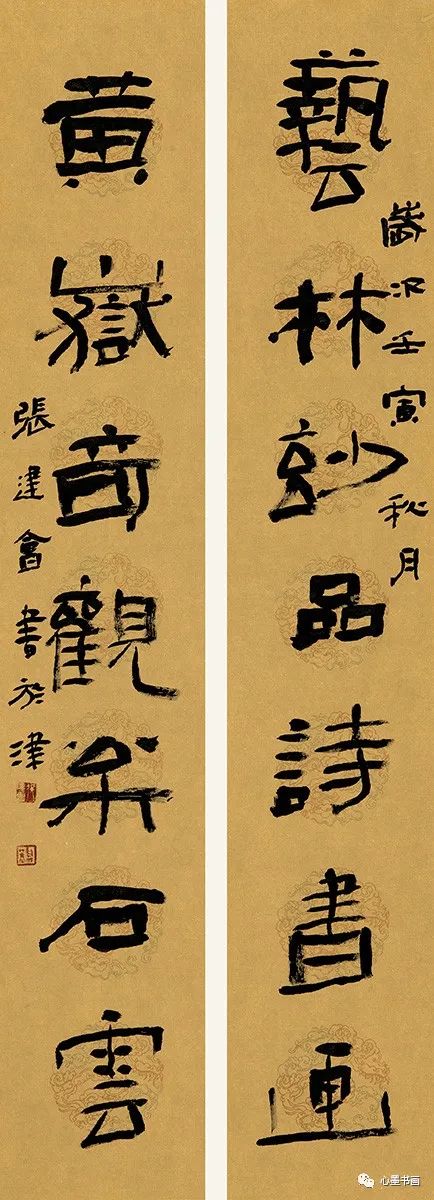 歲次壬寅秋月
藝林玅品詩書画
黄嶽奇觀枀石雲
張建會書於津
心墨书画